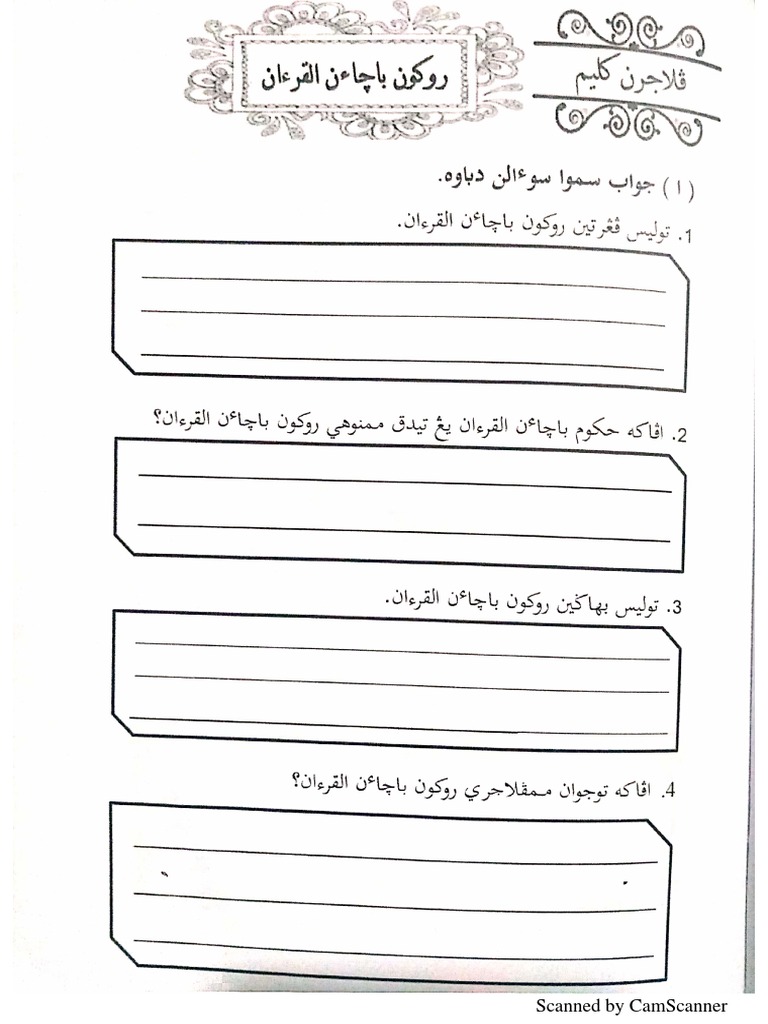 ڤلاجرن كليم
روكون باچاءن القرءان
(١) جواب سموا سوءالن دباوه.
1. توليس ڤڠرتين روكون باچاءن القرءان.
2. اڤاكه حكوم باچاءن القرءان يڠ تيدق ممنوهي روكون باچاءن القرءان؟
3. توليس بهاݢين روكون باچاءن القرءان.
4. اڤاكه توجوان ممڤلاجري روكون باچاءن القرءان؟
Scanned by CamScanner